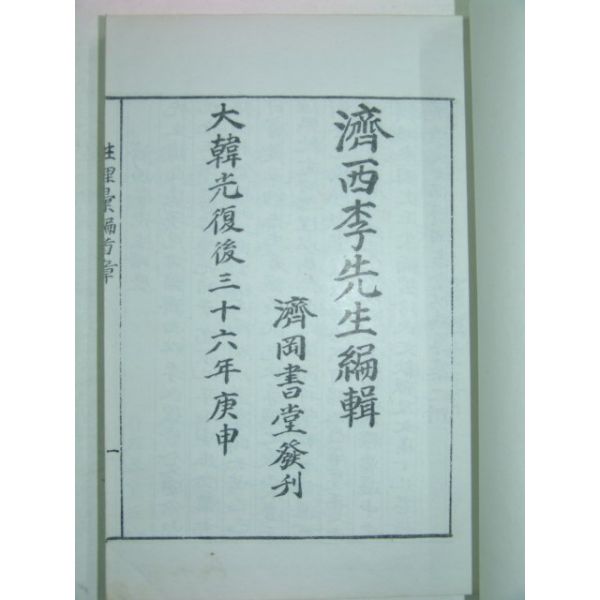 濟西李先生編輯
濟岡書堂發刊
大韓光復後三十六年庚申
性理彙編首章
一